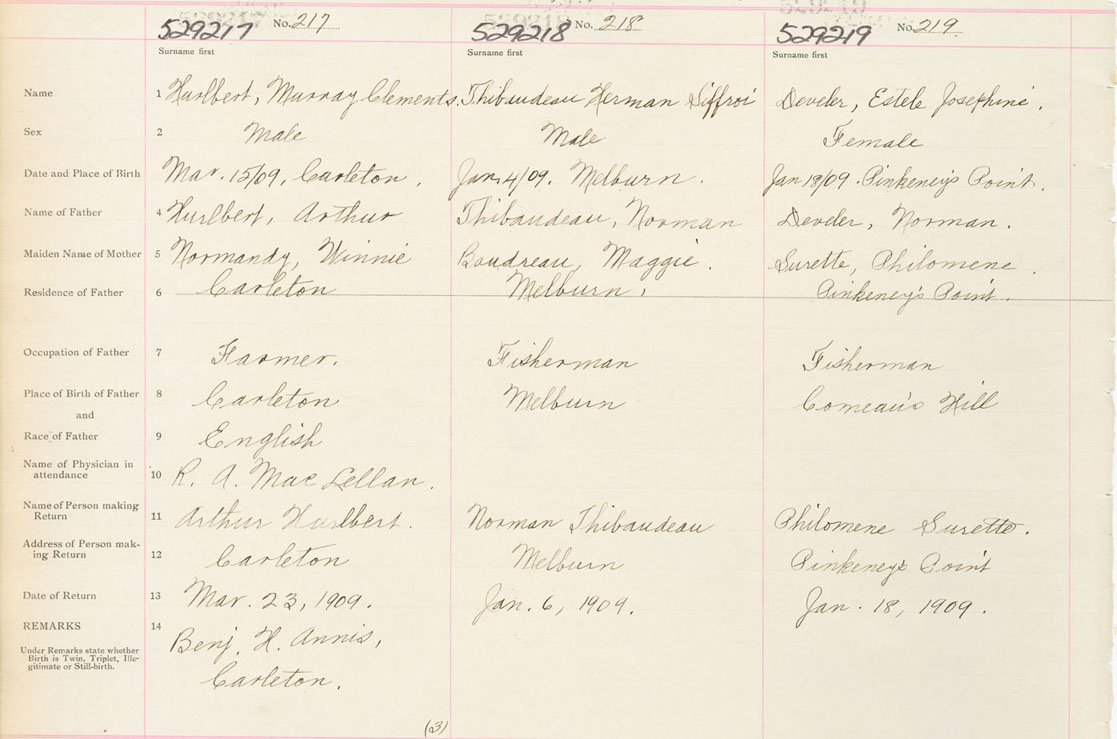 529217 No. 217 529218 No. 218 529219 No. 219
Surname first Surname first Surname first
Name 1 Hurlbert, Murray Clements. Thibaudeau Herman Siffroi Develer, Estele Josephine.
Sex 2 Male Male Female
Date and Place of Birth Mar. 15/09, Carleton. Jan. 4/09. Melburn. Jan 18/09. Pinkeney's Point.
Name of Father 4 Hurlbert, Arthur Thibaudeau, Norman Develer, Norman.
Maiden Name of Mother 5 Normandy, Winnie Boudreau, Maggie. Surette, Philomene.
Residence of Father 6 Carleton Melburn, Pinkeney's Point.
Occupation of Father 7 Farmer. Fisherman Fisherman
Place of Birth of Father 8 Carleton Melburn Comeau's Hill
and
Race of Father 9 English
Name of Physician in
attendance 10 R. A. MacLellan.
Name of Person making
Return 11 Arthur Hurlbert. Norman Thibaudeau Philomene Surette.
Address of Person mak-
ing Return 12 Carleton Melburn Pinkeney's Point
Date of Return 13 Mar. 23, 1909. Jan. 6, 1909. Jan. 18, 1909.
REMARKS 14
Benj. H. Annis,
Under Remarks state whether
Birth is Twin, Triplet, Ille-
gitimate or Still-birth.
Carleton.
(3)